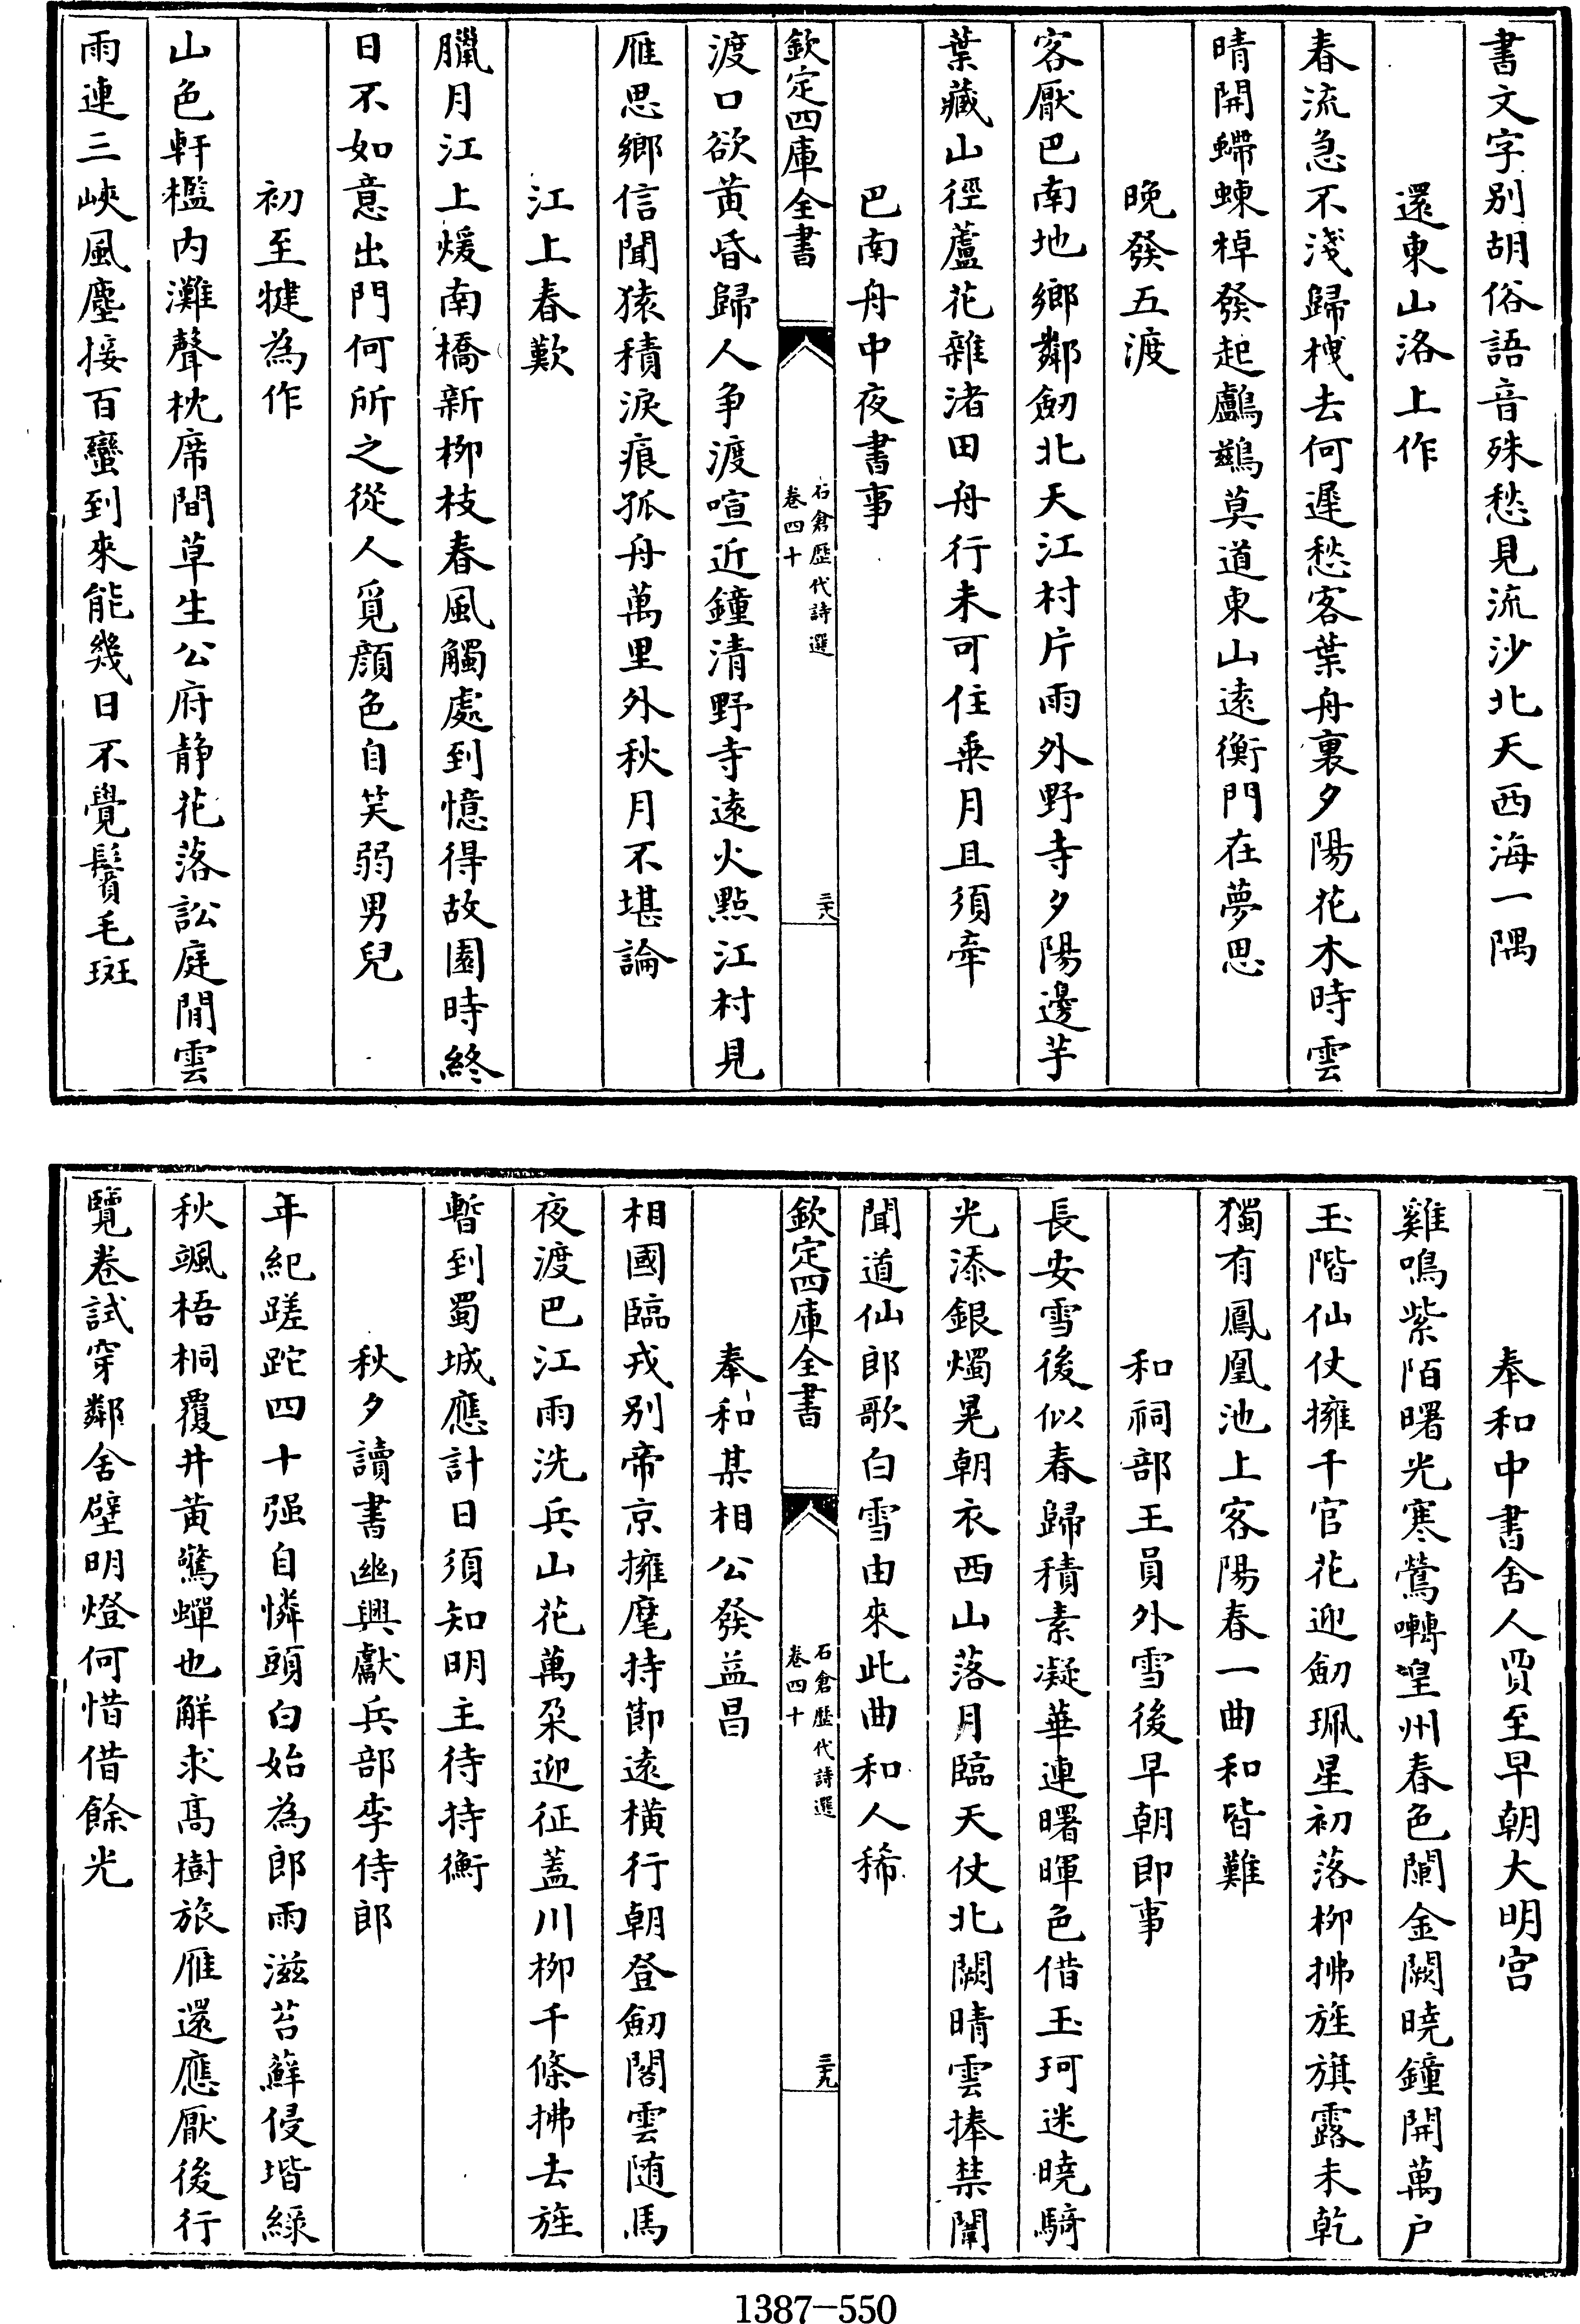 書文字别胡俗語音殊愁見流沙北天西海一隅
還東山洛上作
春流急不淺歸栧去何遲愁客葉舟裏夕陽花木時雲
晴開螮蝀棹發起鸕鷀莫道東山遠衡門在夢思
晚發五渡
客厭巴南地鄉鄰劒北天江村片雨外野寺夕陽邊芋
葉藏山徑蘆花雜渚田舟行未可住乗月且須牽
巴南舟中夜書事
欽定四庫全書
石倉歷代詩選
卷四十
三十八
渡口欲黄昏歸人争渡喧近鐘清野寺遠火點江村見
雁思鄉信聞猿積淚痕孤舟萬里外秋月不堪論
江上春歎
臘月江上煖南橋新柳枝春風觸處到憶得故園時終
日不如意出門何所之從人覓顔色自笑弱男兒
初至犍為作
山色軒檻内灘聲枕席間草生公府静花落訟庭閒雲
雨連三峽風塵接百蠻到來能幾日不覺鬢毛斑
奉和中書舍人賈至早朝大明宫
雞鳴紫陌曙光寒鶯囀皇州春色闌金闕曉鐘開萬户
玉階仙仗擁千官花迎劒珮星初落柳拂旌旗露未乾
獨有鳳凰池上客陽春一曲和皆難
和祠部王員外雪後早朝即事
長安雪後似春歸積素凝華連曙暉色借玉珂迷曉騎
光添銀燭晃朝衣西山落月臨天仗北闕晴雲捧禁闈
聞道仙郎歌白雪由來此曲和人稀
欽定四庫全書
石倉歷代詩選
卷四十
三十九
奉和某相公發益昌
相國臨戎别帝京擁麾持節遠橫行朝登劒閣雲随馬
夜渡巴江雨洗兵山花萬朶迎征蓋川柳千條拂去旌
暫到蜀城應計日須知明主待持衡
秋夕讀書幽興獻兵部李侍郎
年紀蹉跎四十强自憐頭白始為郎雨滋苔蘚侵堦緑
秋颯梧桐覆井黄驚蟬也解求高樹旅雁還應厭後行
覽卷試穿鄰舍壁明燈何惜借餘光
1387-550